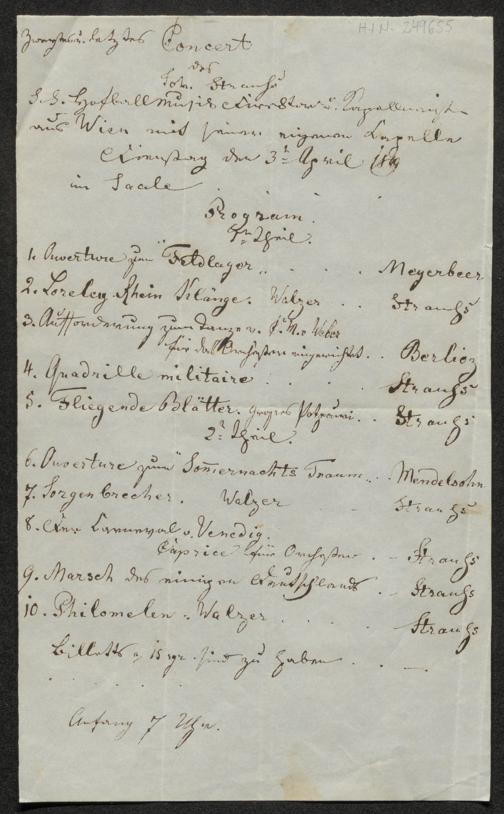 H.I.N. 249655
Zweites u. letztes Concert
des
Joh. Strauss
k. k. Hofball Musik Director u. Kapellmeister
aus Wien mit seiner eigenen Kapelle
Dienstag den 3t. April
im Saale
Program.
1r. Theil.
1. Ouverture zum "Feldlager" . . . Meyerbeer
2. Loreley Rhein Klänge. Walzer . . Strauhs
3. Aufforderung zum Tanze v. C. M. v Weber
für das Orchester eingerichtet . . Berlioz
4. Quadrille militaire . . . Strauhs
5. Fliegende Blätter. großes Potpourri . . Strauhs
2r. Theil.
6. Ouverture zum Somernachts Traum . . Mendelsohn
7. Sorgenbrecher. Walzer Strauhs
8. Der Carneval v. Venedig.
Caprice für Orchester . - Strauhs
9. Marsch des einigen Deutschlands . - Strauhs
10. Philomelen - Walzer . . . Strauhs
Billetts a 15 sgr. sind zu haben . . —
Anfang 7 Uhr.